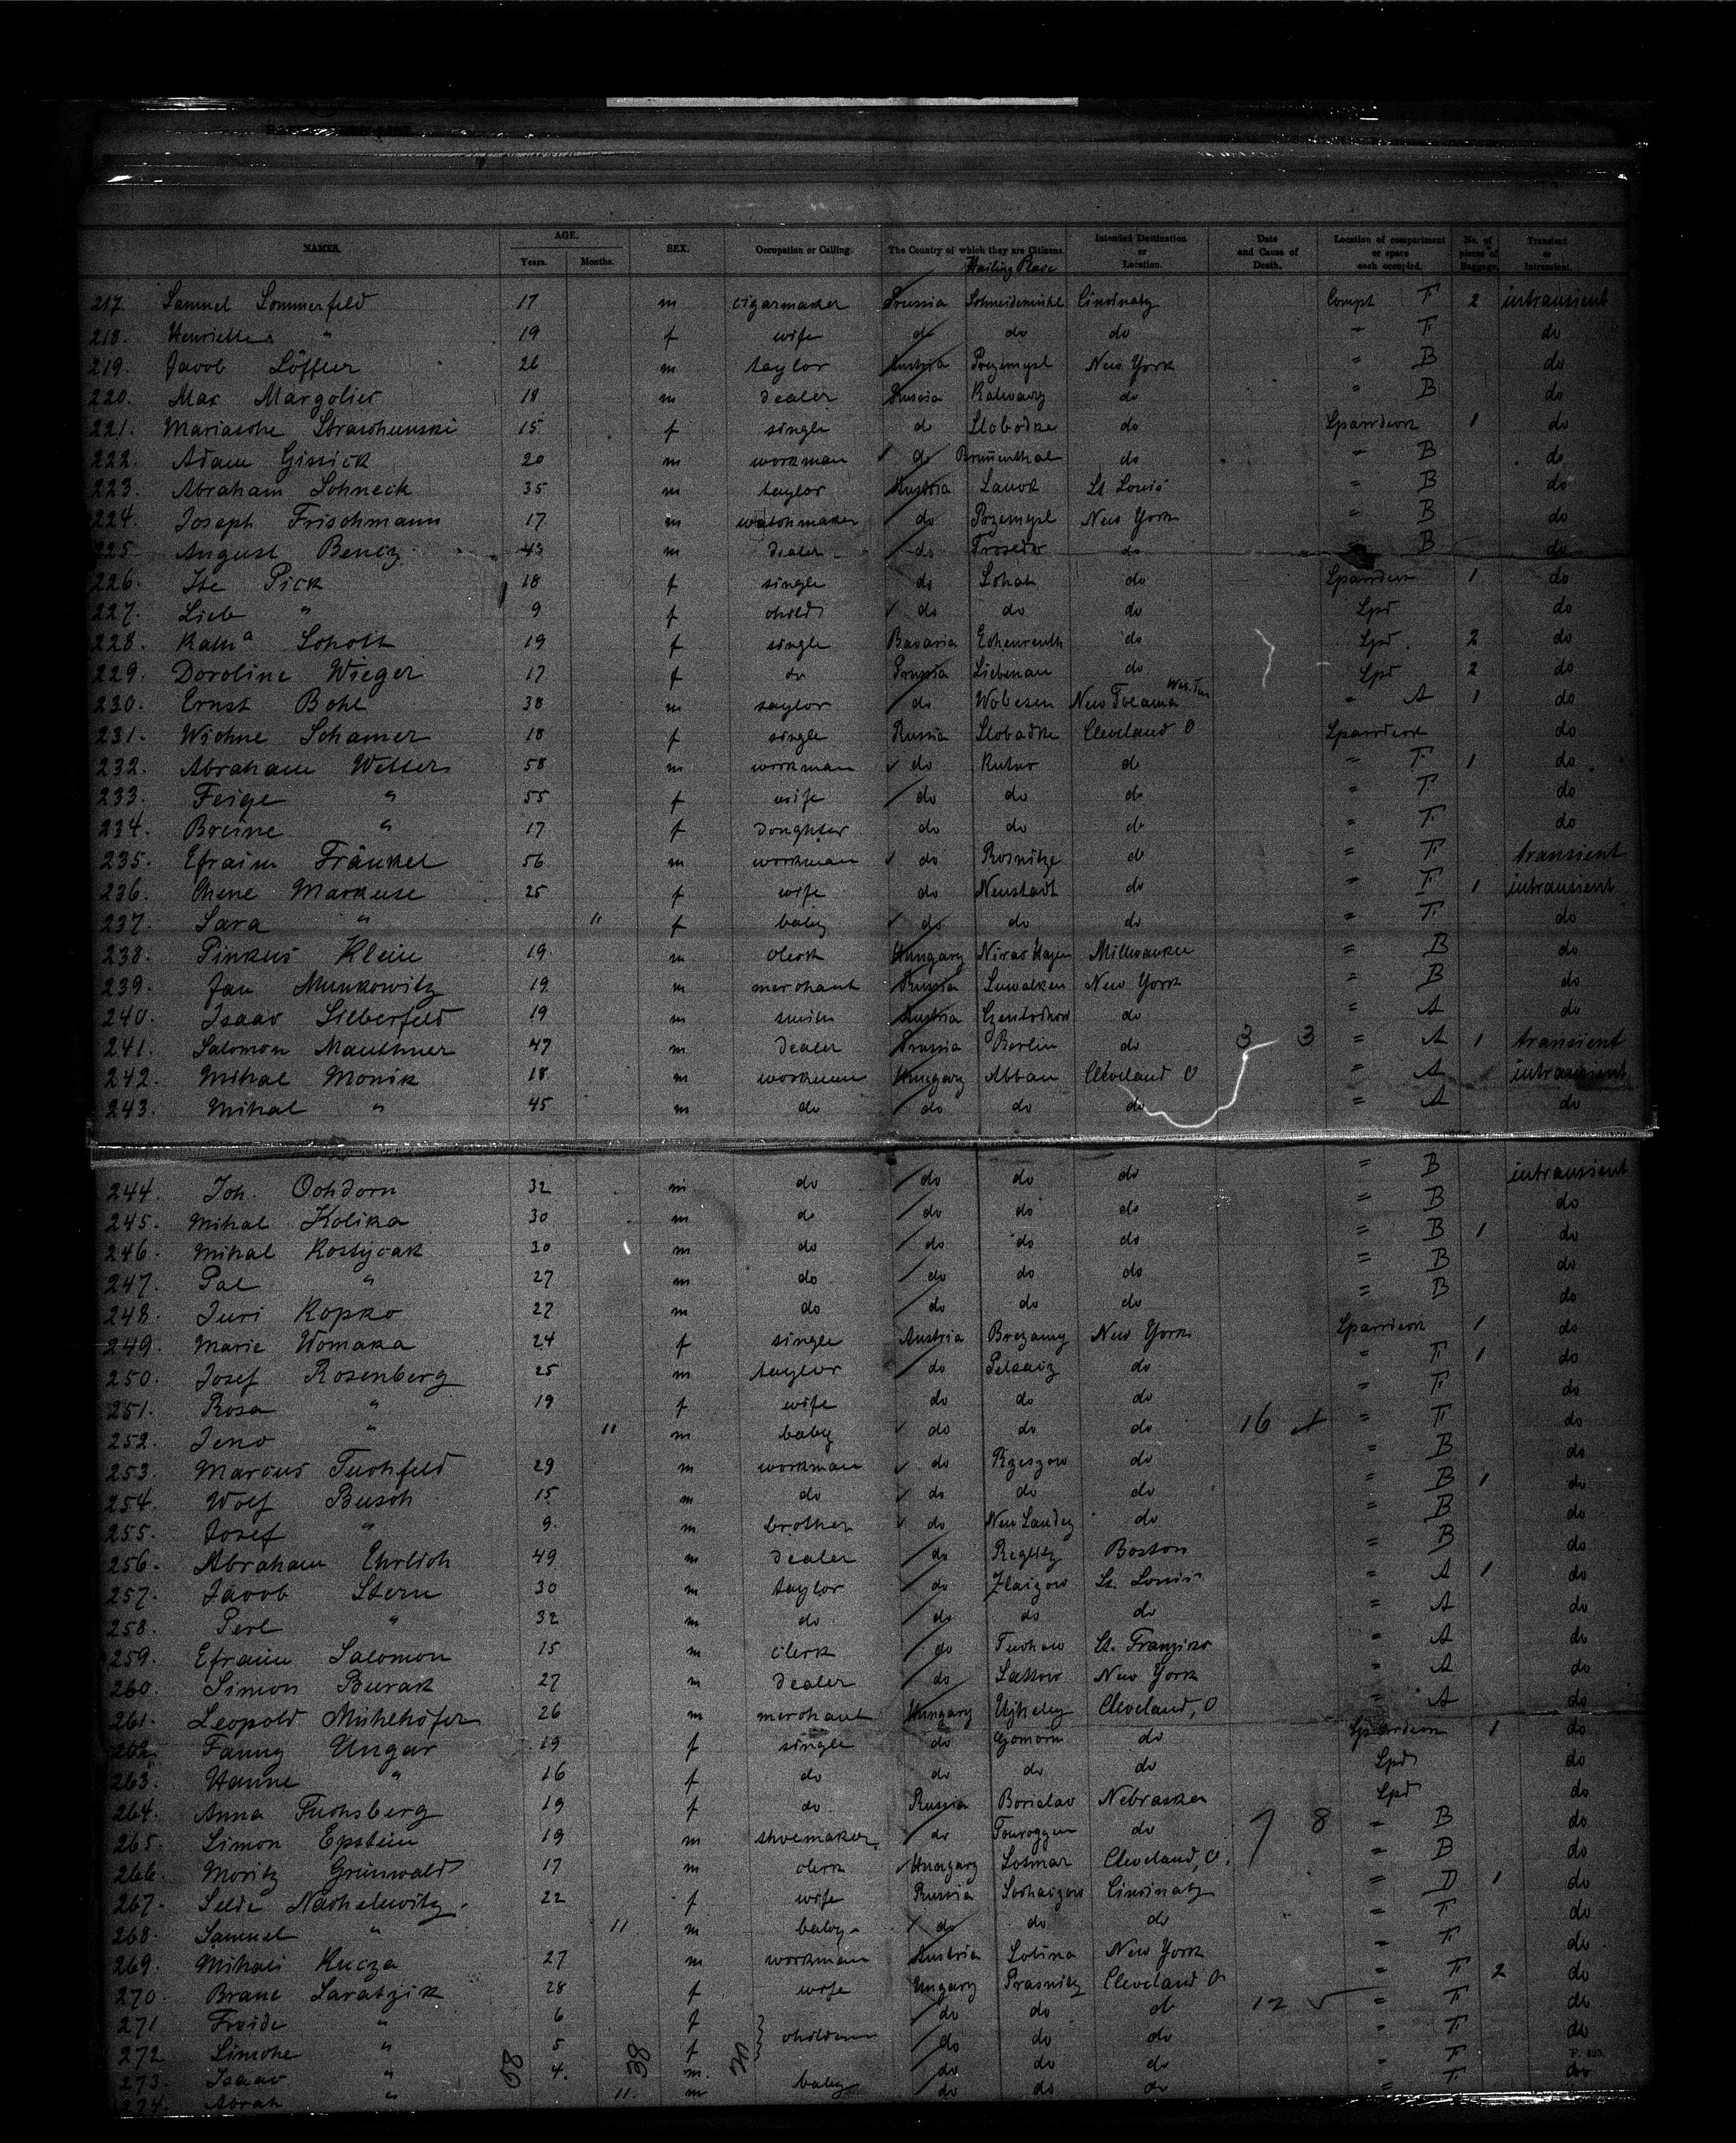 NAMES. AGE. Years. Months. SEX. Occupation or Calling. The Country of which they are Citizens. Hailing Place Intended Destination or Location. Date and Cause of Death. Location of compartment or space each occupied. No. of pieces of Baggage. Transient or Intransient.
217. Samuel Sommerfeld 17 m cigarmaker Prussia Schneidemühl Cincinaty Compt T. 2 intransient
218. Henriette " 19 f wife do do do " T. do
219. Jacob Löffler 26 m taylor Austria Przemysl New York " B do
220. Max Margolies 18 m dealer Russia Kalwary do " B do
221. Mariasche Straschunski 15 f single do Slobodke do Sparrdeck 1 do
222. Adam Gissick 20 m workman do Brunenthal do " B do
223. Abraham Schneck 35 m taylor Austria Sanok St. Louis " B do
224. Joseph Frischmann 17 m watchmaker do Przemysl New York " B do
225. August Bencz 43 m dealer do do B do
226. Ite Pick 18 f single do Schat do Sparrdeck 1 do
227. Lieb " 9 f child do do do Spd do
228. Kath^a Schott 19 f single Bavaria Echenreuth do Spd. 2 do
229. Doroline Wieger 17 f do Prussia Liebenau do Spd 2 do
230. Ernst Bohl 38 m taylor do Wobesen New Tocama " A 1 do
231. Wichne Schamer 18 f single Russia Slobadke Cleveland O Sparrdeck do
232. Abraham Welter 58 m workman do Kutno do " T. 1 do
233. Feige " 55 f wife do do do " T. do
234. Breine " 17 f doughter do do do " T. do
235. Efraim Fränkel 56 m workman do Rosnitze do " T. transient
236. Chene Markuse 25 f wife do Neustadt do " T. 1 intransient
237. Sara " 11 f baby do do do " T. do
238. Pinkus Klein 19 m clerk Hungary Milwaukee " B do
239. Jan Munkowitz 19 m merchant Russia Suwalken New York " B do
240. Isaac Silberfeld 19 m smith Austria do " A do
241. Salomon Mauthner 47 m dealer Prussia Berlin do 3 3 " A 1 transient
242. Mihal Monik 18 m workman Hungary Abbau Cleveland O " A intransient
243. Mihal " 45 m do do do do " A do
244. Joh. Ochdorn 32 m do do do do " B intransient
245. Mihal Kolika 30 m do do do do " B do
246. Mihal Kostycak 30 m do do do do " B 1 do
247. Pal " 27 m do do do do " B do
248. Juri Kopko 27 m do do do do " B do
249. Marie Womaka 24 f single Austria Brezany New York Sparrdeck 1 do
250. Josef Rosenberg 25 m taylor do do " T. 1 do
251. Rosa " 19 f wife do do do " T. do
252. Jeno " 11 m baby do do do 16 " T. do
253. Marcus Tuchfeld 29 m workman do Rzeszow do " B do
254. Wolf Busch 15 m do do do do " B 1 do
255. Josef " 9 m brother do Neu Sandez do " B do
256. Abraham Ehrlich 49 m dealer do Boston " B do
257. Jacob Stern 30 m taylor do St. Louis " A 1 do
258. Perl " 32 m do do do do " A do
259. Efraim Salomon 15 m clerk do Tuchow St. Franzisko " A do
260. Simon Burak 27 m dealer do New York " A do
261. Leopold Mühlhöfer 26 m merchant Hungary Ujhely Cleveland, O " A do
262. Fanny Ungar 19 f single do Gomorn do Sparrdeck 1 do
263. Hanne " 16 f do do do do Spd do
264. Anna Fuchsberg 19 f do Russia Borislav Nebraska Spd do
265. Simon Epstein 19 m shoemaker do Tauroggen do 7 8 " B do
266. Moritz Grünwald 17 m clerk Hungary Cleveland, O. " B do
267. Selde Nachelewitz 22 f wife Russia Cincinaty " D 1 do
268. Samuel " 11 m baby do do do " T. do
269. Mihali Kucza 27 m workman Austria Lolina New York " T. do
270. Brane Saratzik 28 f wife Ungary Prasnitz Cleveland O " T. 2 do
271 Freide " 6 f children do do do 12 " T. do
272 Simche " 5 f do do do " T. do
273. Isaac " 4. m. do do do " T. do
274. Abrah " 11. m baby do do do " T.